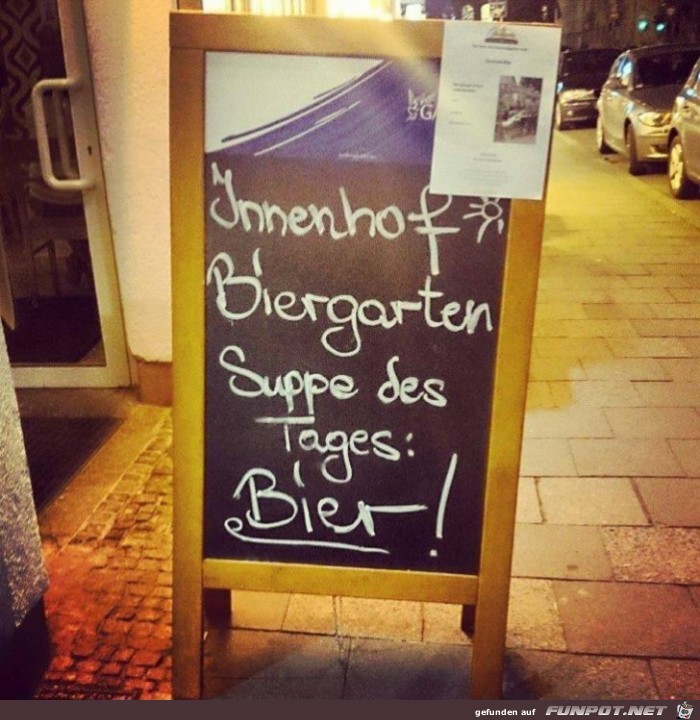 Innenhof
Biergarten
Suppe des
Tages:
Bier!
gefunden auf FUNPOT.NET